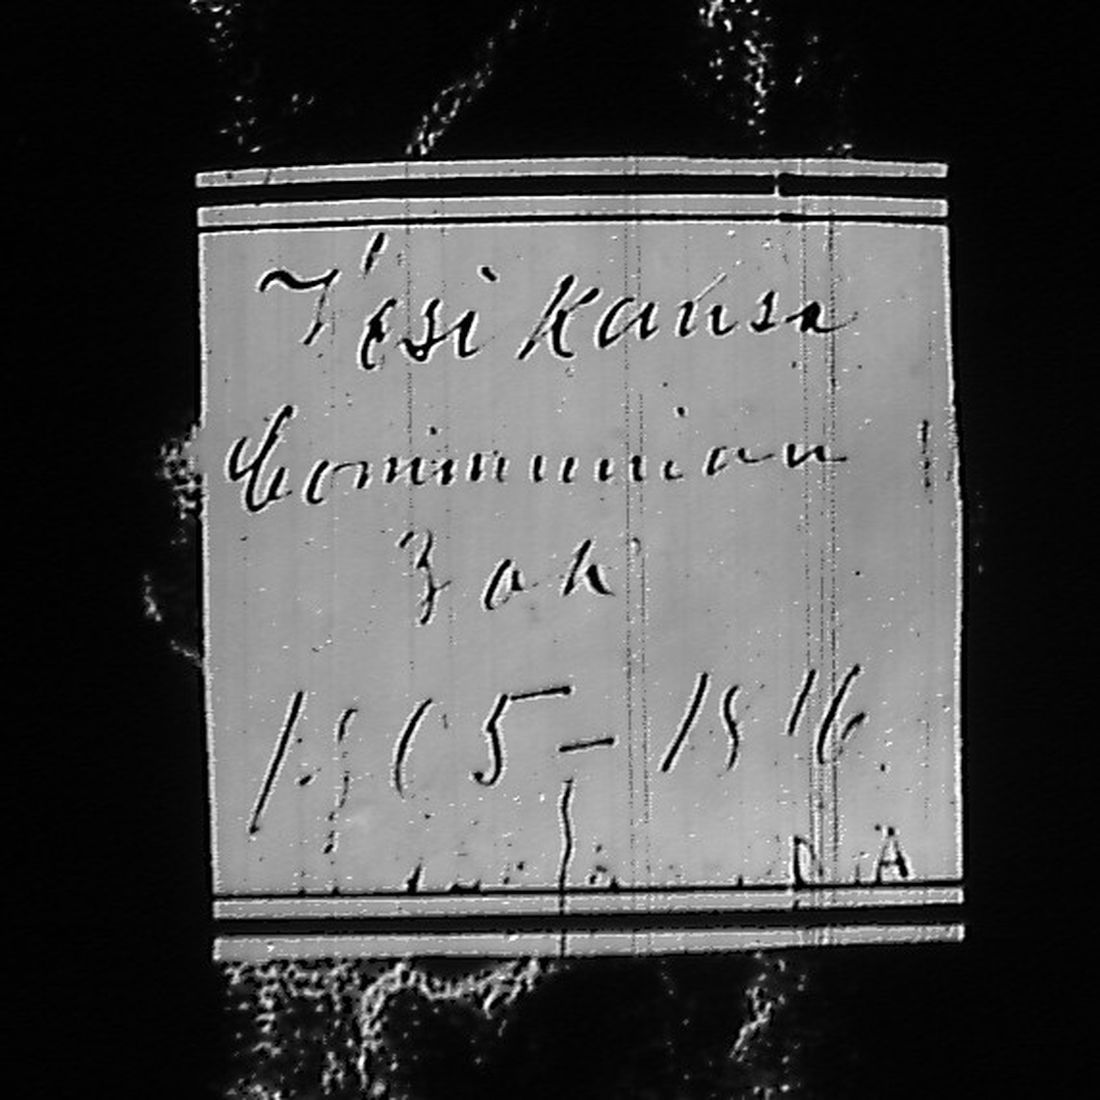 Vesikansa
Communion
Bok
1905–1916.